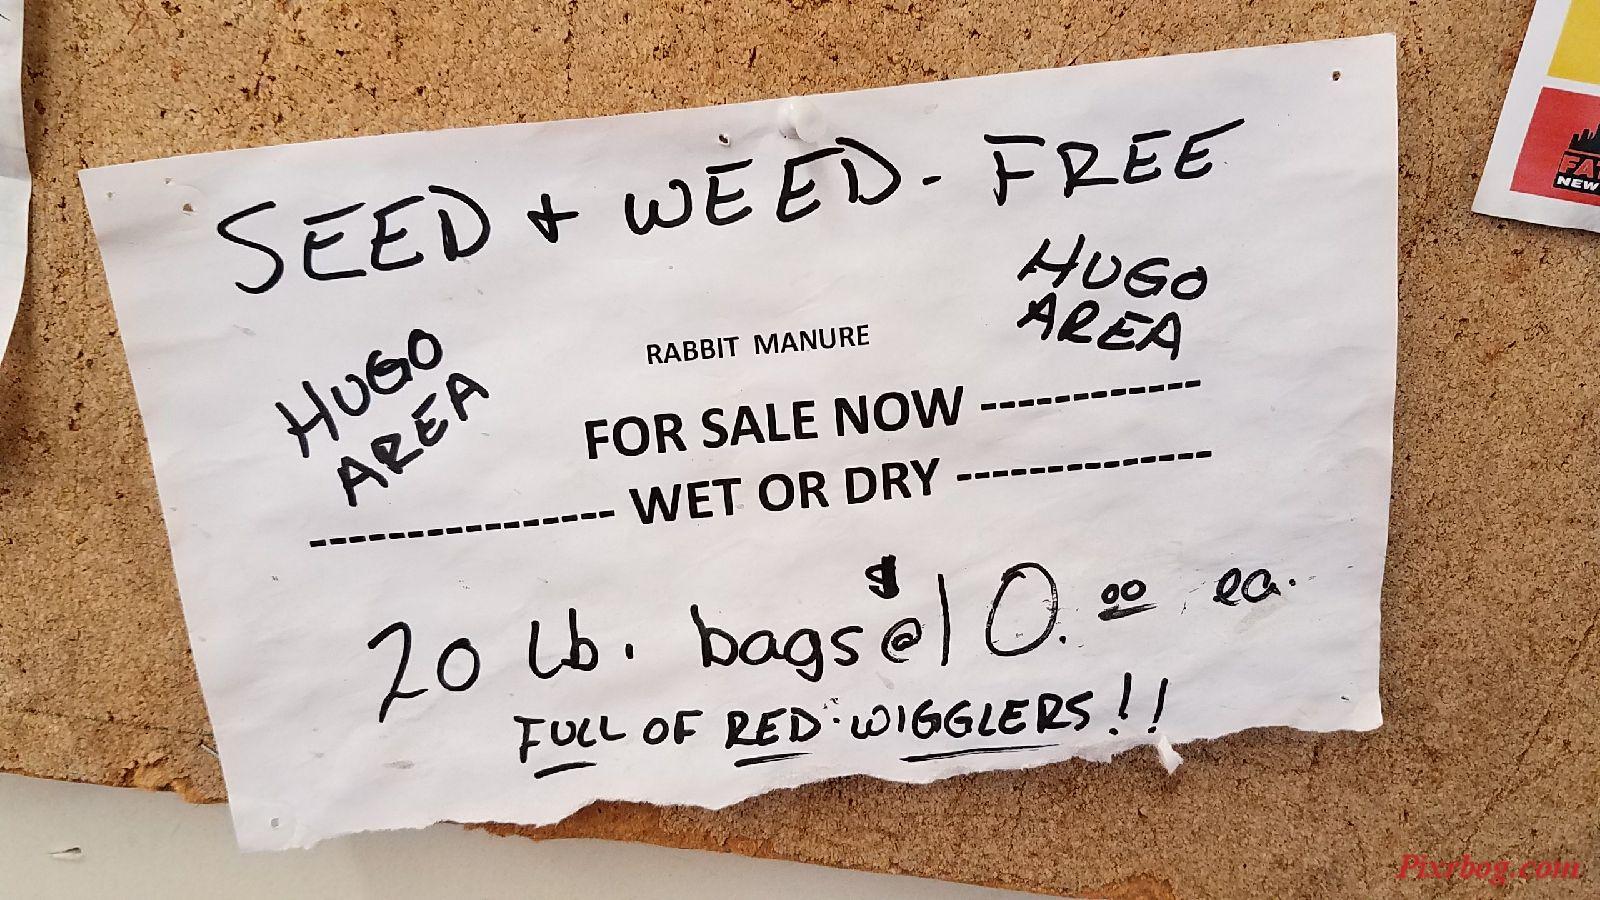 SEED + WEED-FREE
HUGO
AREA
HUGO
AREA
RABBIT MANURE
FOR SALE NOW -----------
---------------- WET OR DRY -------------
20 lb. bags @ $10.00 ea.
FULL OF RED WIGGLERS!!
NEW
Pixrbog.com